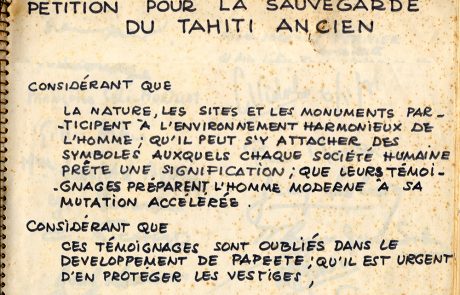 PETITION POUR LA SAUVEGARDE
DU TAHITI ANCIEN
CONSIDÉRANT QUE
LA NATURE, LES SITES ET LES MONUMENTS PAR-
-TICIPENT À L'ENVIRONNEMENT HARMONIEUX DE
L'HOMME; QU'IL PEUT S'Y ATTACHER DES
SYMBOLES AUXQUELS CHAQUE SOCIÉTÉ HUMAINE
PRÊTE UNE SIGNIFICATION; QUE LEURS TÉMOI-
-GNAGES PRÉPARENT L'HOMME MODERNE À SA
MUTATION ACCÉLÉRÉE.
CONSIDÉRANT QUE
CES TÉMOIGNAGES SONT OUBLIÉS DANS LE
DEVELOPPEMENT DE PAPEETE; QU'IL EST URGENT
D'EN PROTÉGER LES VESTIGES;